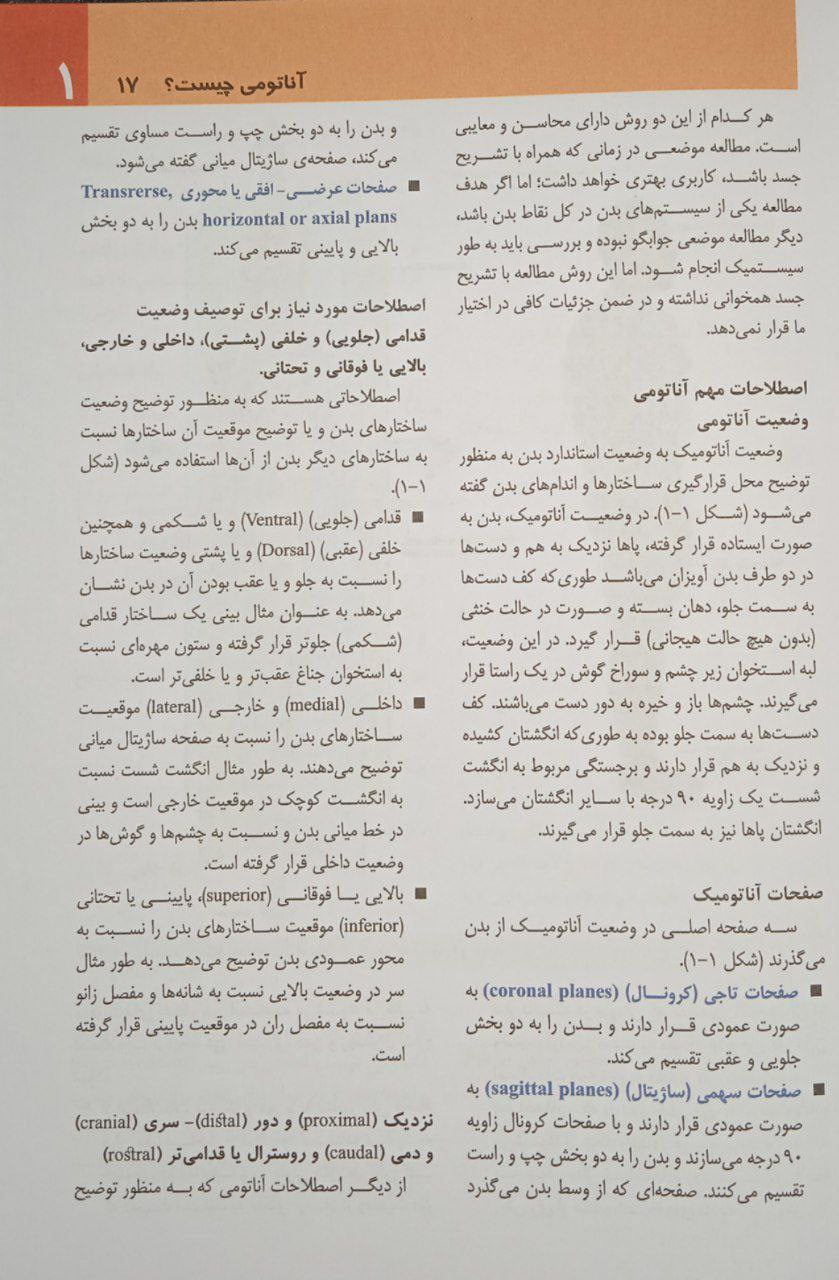 آناتومی چیست؟ ۱۷ ۱
هر کدام از این دو روش دارای محاسن و معایبی
است. مطالعه موضعی در زمانی که همراه با تشریح
جسد باشد، کاربری بهتری خواهد داشت؛ اما اگر هدف
مطالعه یکی از سیستم‌های بدن در کل نقاط بدن باشد،
دیگر مطالعه موضعی جوابگو نبوده و بررسی باید به طور
سیستمیک انجام شود. اما این روش مطالعه با تشریح
جسد همخوانی نداشته و در ضمن جزئیات کافی در اختیار
ما قرار نمی‌دهد.
اصطلاحات مهم آناتومی
وضعیت آناتومی
وضعیت آناتومیک به وضعیت استاندارد بدن به منظور
توضیح محل قرارگیری ساختارها و اندام‌های بدن گفته
می‌شود (شکل ۱-۱). در وضعیت آناتومیک، بدن به
صورت ایستاده قرار گرفته، پاها نزدیک به هم و دست‌ها
در دو طرف بدن آویزان می‌باشد طوری‌که کف دست‌ها
به سمت جلو، دهان بسته و صورت در حالت خنثی
(بدون هیچ حالت هیجانی) قرار گیرد. در این وضعیت،
لبه استخوان زیر چشم و سوراخ گوش در یک راستا قرار
می‌گیرند. چشم‌ها باز و خیره به دور دست می‌باشند. کف
دست‌ها به سمت جلو بوده به طوری‌که انگشتان کشیده
و نزدیک به هم قرار دارند و برجستگی مربوط به انگشت
شست یک زاویه ۹۰ درجه با سایر انگشتان می‌سازد.
انگشتان پاها نیز به سمت جلو قرار می‌گیرند.
صفحات آناتومیک
سه صفحه اصلی در وضعیت آناتومیک از بدن
می‌گذرند (شکل ۱-۱).
■ صفحات تاجی (کرونال) (coronal planes) به
صورت عمودی قرار دارند و بدن را به دو بخش
جلویی و عقبی تقسیم می‌کند.
■ صفحات سهمی (ساژیتال) (sagittal planes) به
صورت عمودی قرار دارند و با صفحات کرونال زاویه
۹۰ درجه می‌سازند و بدن را به دو بخش چپ و راست
تقسیم می‌کنند. صفحه‌ای که از وسط بدن می‌گذرد
و بدن را به دو بخش چپ و راست مساوی تقسیم
می‌کند، صفحه‌ی ساژیتال میانی گفته می‌شود.
■ صفحات عرضی- افقی یا محوری Transrerse,
horizontal or axial plans بدن را به دو بخش
بالایی و پایینی تقسیم می‌کند.
اصطلاحات مورد نیاز برای توصیف وضعیت
قدامی (جلویی) و خلفی (پشتی)، داخلی و خارجی،
بالایی یا فوقانی و تحتانی.
اصطلاحاتی هستند که به منظور توضیح وضعیت
ساختارهای بدن و یا توضیح موقعیت آن ساختارها نسبت
به ساختارهای دیگر بدن از آن‌ها استفاده می‌شود (شکل
۱-۱).
■ قدامی (جلویی) (Ventral) و یا شکمی و همچنین
خلفی (عقبی) (Dorsal) و یا پشتی وضعیت ساختارها
را نسبت به جلو و یا عقب بودن آن در بدن نشان
می‌دهد. به عنوان مثال بینی یک ساختار قدامی
(شکمی) جلوتر قرار گرفته و ستون مهره‌ای نسبت
به استخوان جناغ عقب‌تر و یا خلفی‌تر است.
■ داخلی (medial) و خارجی (lateral) موقعیت
ساختارهای بدن را نسبت به صفحه ساژیتال میانی
توضیح می‌دهند. به طور مثال انگشت شست نسبت
به انگشت کوچک در موقعیت خارجی است و بینی
در خط میانی بدن و نسبت به چشم‌ها و گوش‌ها در
وضعیت داخلی قرار گرفته است.
■ بالایی یا فوقانی (superior)، پایینی یا تحتانی
(inferior) موقعیت ساختارهای بدن را نسبت به
محور عمودی بدن توضیح می‌دهد. به طور مثال
سر در وضعیت بالایی نسبت به شانه‌ها و مفصل زانو
نسبت به مفصل ران در موقعیت پایینی قرار گرفته
است.
نزدیک (proximal) و دور (distal)- سری (cranial)
و دمی (caudal) و روسترال یا قدامی‌تر (rostral)
از دیگر اصطلاحات آناتومی که به منظور توضیح